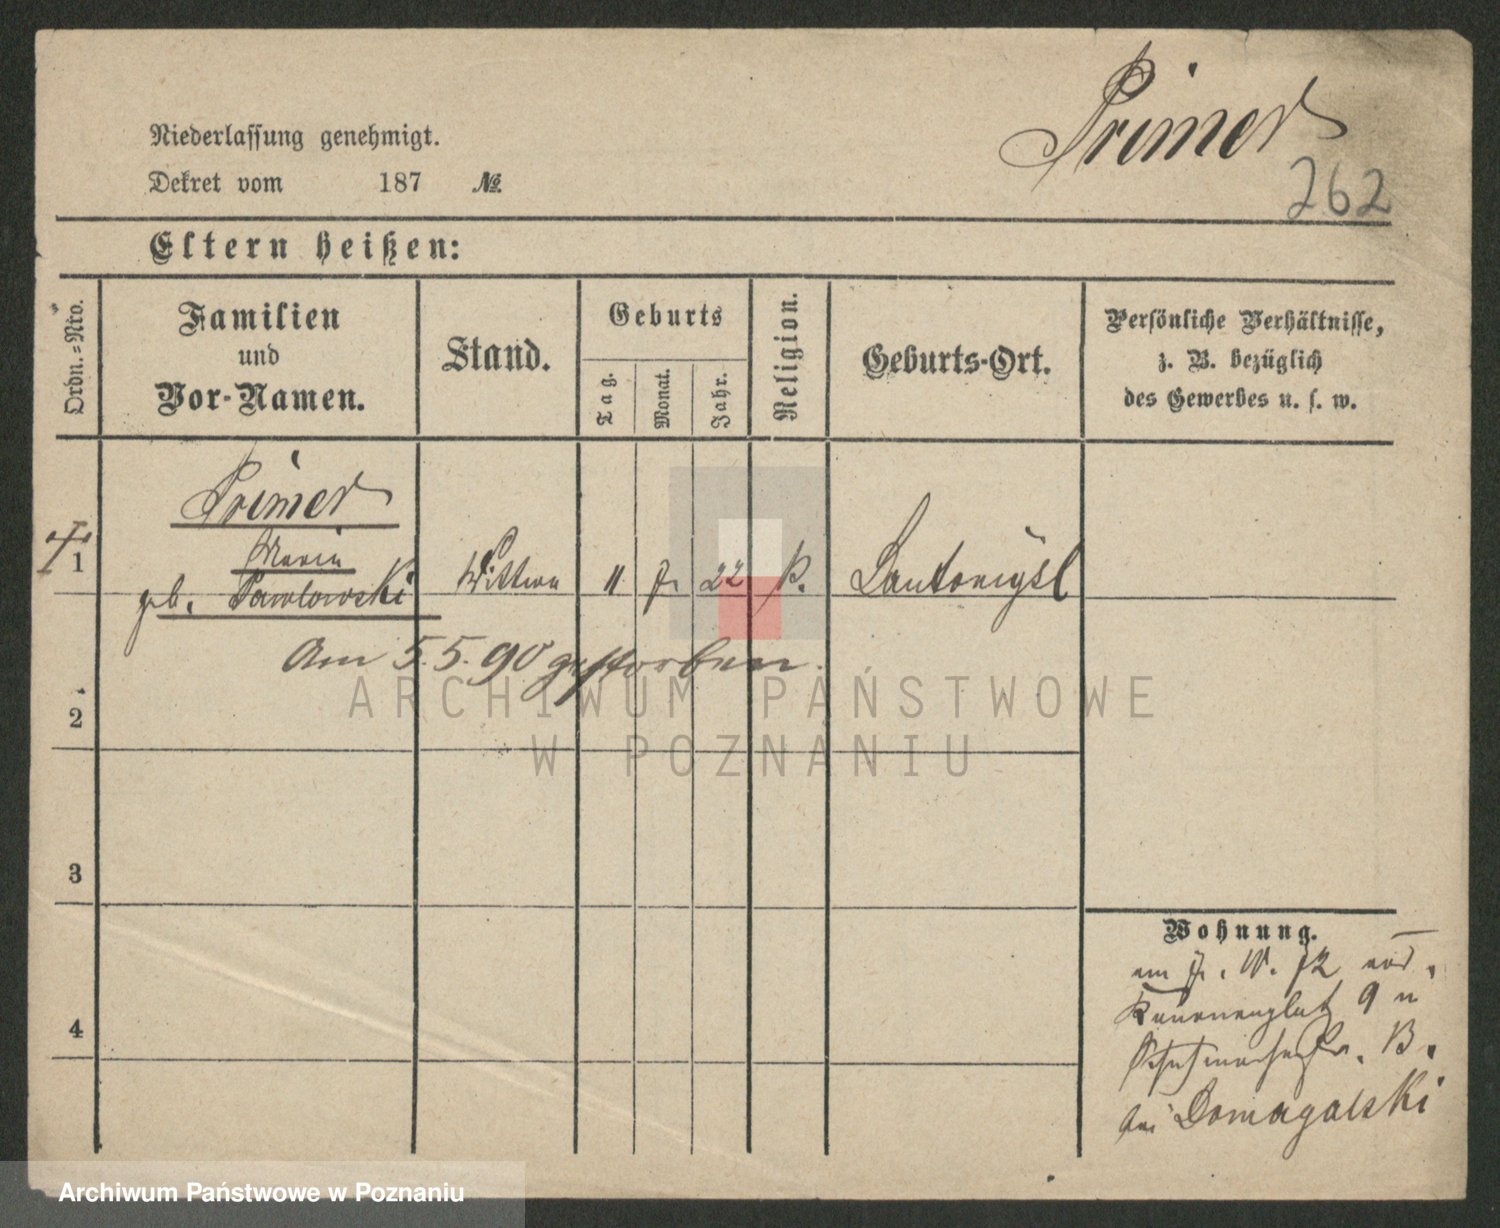 Primer
262
Niederlassung genehmigt.
Dekret vom 187 №
Eltern heißen:
Ordn.=Nro.
Familien
und
Vor-Namen.
Stand.
Geburts
Tag.
Monat.
Jahr.
Religion.
Geburts-Ort.
Persönliche Verhältnisse,
z. B. bezüglich
des Gewerbes u. s. w.
Primer
1 Maria
geb. Pawlowski Wittwe 11 22 K.
Am 5.5.90 gestorben.
2
3
4
Wohnung.
9
B.
bei Domagalski
ARCHIWUM PAŃSTWOWE
W POZNANIU
Archiwum Państwowe w Poznaniu